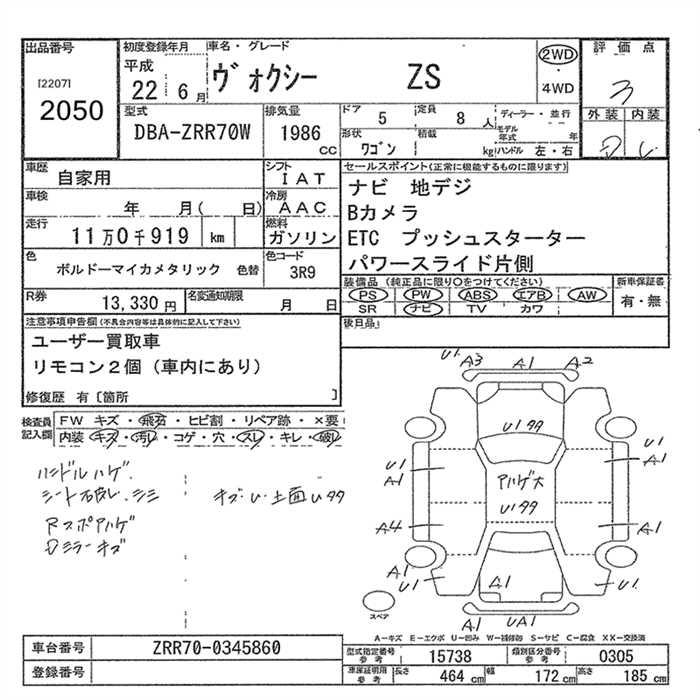 出品番号
[2207]
2050
初度登録年月
平成
22 6月
車名・グレード
ヴォクシー ZS
2WD
・
4WD
評価点
3
外装 内装
D
型式
DBA-ZRR70W
排気量
1986 cc
ドア 5
定員 8 人
形状 ワゴン
積載 kg
ディーラー・並行
モデル年式 年
ハンドル 左・右
車歴 自家用
シフト IAT
車検 年 月( 日)
冷房 AAC
走行 11万0千919 km
燃料 ガソリン
色 ボルドーマイカメタリック 色替
色コード 3R9
R券 13,330 円
名変通知期限 月 日
セールスポイント(正常に機能するものに限ります)
ナビ 地デジ
Bカメラ
ETC プッシュスターター
パワースライド片側
装備品 (純正品に限り○をつけてください)
PS PW ABS エアB AW
SR ナビ TV カワ
新車保証書
有・無
後日品
注意事項申告欄(不具合内容等は具体的に記入して下さい)
ユーザー買取車
リモコン2個(車内にあり)
修復歴 有[箇所 ]
検査員記入欄
FW キズ・飛石・ヒビ割・リペア跡・×要
内装・キズ・汚レ・コゲ・穴・スレ・キレ・破レ
ハンドルハゲ.
シート破レ.シミ
RスポAハゲ
Dミラーキズ
キズ・U・土面Uタタ
U1 A3 A1 A2
Uタタ
U1 A1
U1 A1
Aハゲ大
Uタタ
A4
A1
A1 U1
A1
U1
A1 UA1
スペア
A-キズ E-エクボ U-凹み W-補修跡 S-サビ C-腐食 XX-交換済
車台番号 ZRR70-0345860
登録番号
型式指定番号 参考 15738
類別区分番号 参考 0305
車庫証明用 参考
長さ 464 cm
幅 172 cm
高さ 185 cm